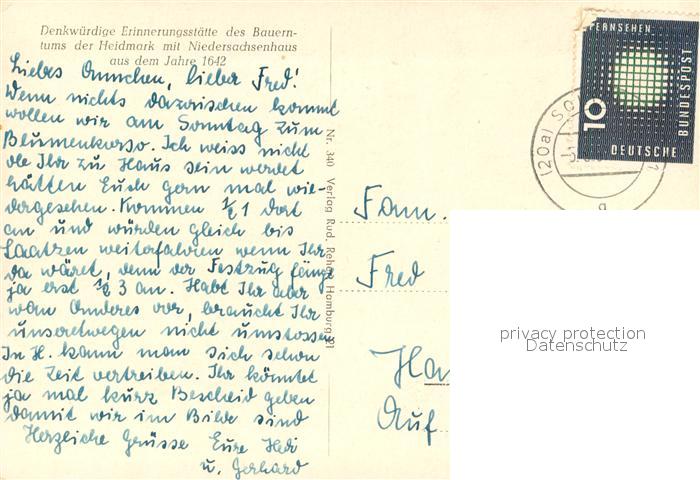 Denkwürdige Erinnerungsstätte des Bauern-
tums der Heidmark mit Niedersachsenhaus
aus dem Jahre 1642
Liebes Ommchen, lieber Fred!
Wenn nichts dazwischen kommt
wollen wir am Sonntag zum
Blumenkorso. Ich weiss nicht
ob Ihr zu Haus sein werdet
hätten Euch gern mal wie-
dergesehen. Kommen 1/2 1 dort
an und würden gleich bis
Laatzen weiterfahren wenn Ihr
da wäret, denn der Festzug fängt
ja erst 1/2 3 an. Habt Ihr aber
was Anderes vor, braucht Ihr
unsretwegen nicht umstossen
In H. kann man sich schon
die Zeit vertreiben. Ihr könntet
ja mal kurz Bescheid geben
damit wir im Bilde sind
Herzliche Grüsse Eure Hedi
u. Gerhard
Nr. 340 Verlag Rud. Reher Hamburg 21
Fam.
Fred
Ha
Auf
FERNSEHEN
10
DEUTSCHE
BUNDESPOST
(20a)
privacy protection
Datenschutz